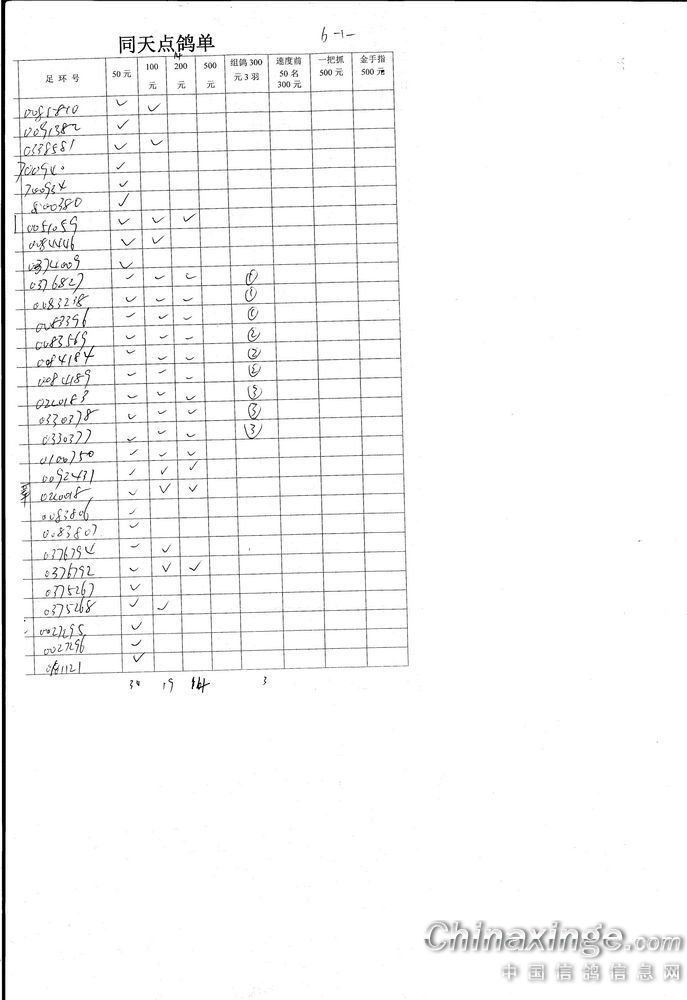 6-1-
同天点鸽单
足环号 50元 100元 200元 500元 组鸽300元3羽 速度前50名300元 一把抓500元 金手指500元
0081840 ✓ ✓
0091382 ✓
0338581 ✓ ✓
700940 ✓
700934 ✓
800380 ✓
0051059 ✓ ✓ ✓
0084446 ✓ ✓
0374009 ✓
0376827 ✓ ✓ ✓ ①
0083218 ✓ ✓ ✓ ①
0083396 ✓ ✓ ✓ ①
0083569 ✓ ✓ ✓ ②
0084184 ✓ ✓ ✓ ②
0084189 ✓ ✓ ✓ ②
0240183 ✓ ✓ ✓ ③
0330378 ✓ ✓ ✓ ③
0330377 ✓ ✓ ✓ ③
0100750 ✓ ✓ ✓
0092431 ✓ ✓ ✓
✓ ✓ ✓
0083806 ✓
0083807 ✓
0376794 ✓ ✓
0376792 ✓ ✓ ✓
0375267 ✓
0375268 ✓ ✓
0027295 ✓
0027296 ✓
✓
30 19 14 3
Chinaxinge.com
中国信鸽信息网